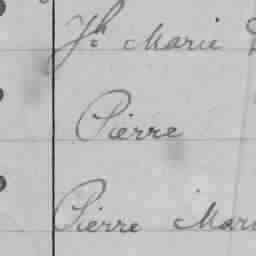 Jh Marie
Pierre
Pierre Mari